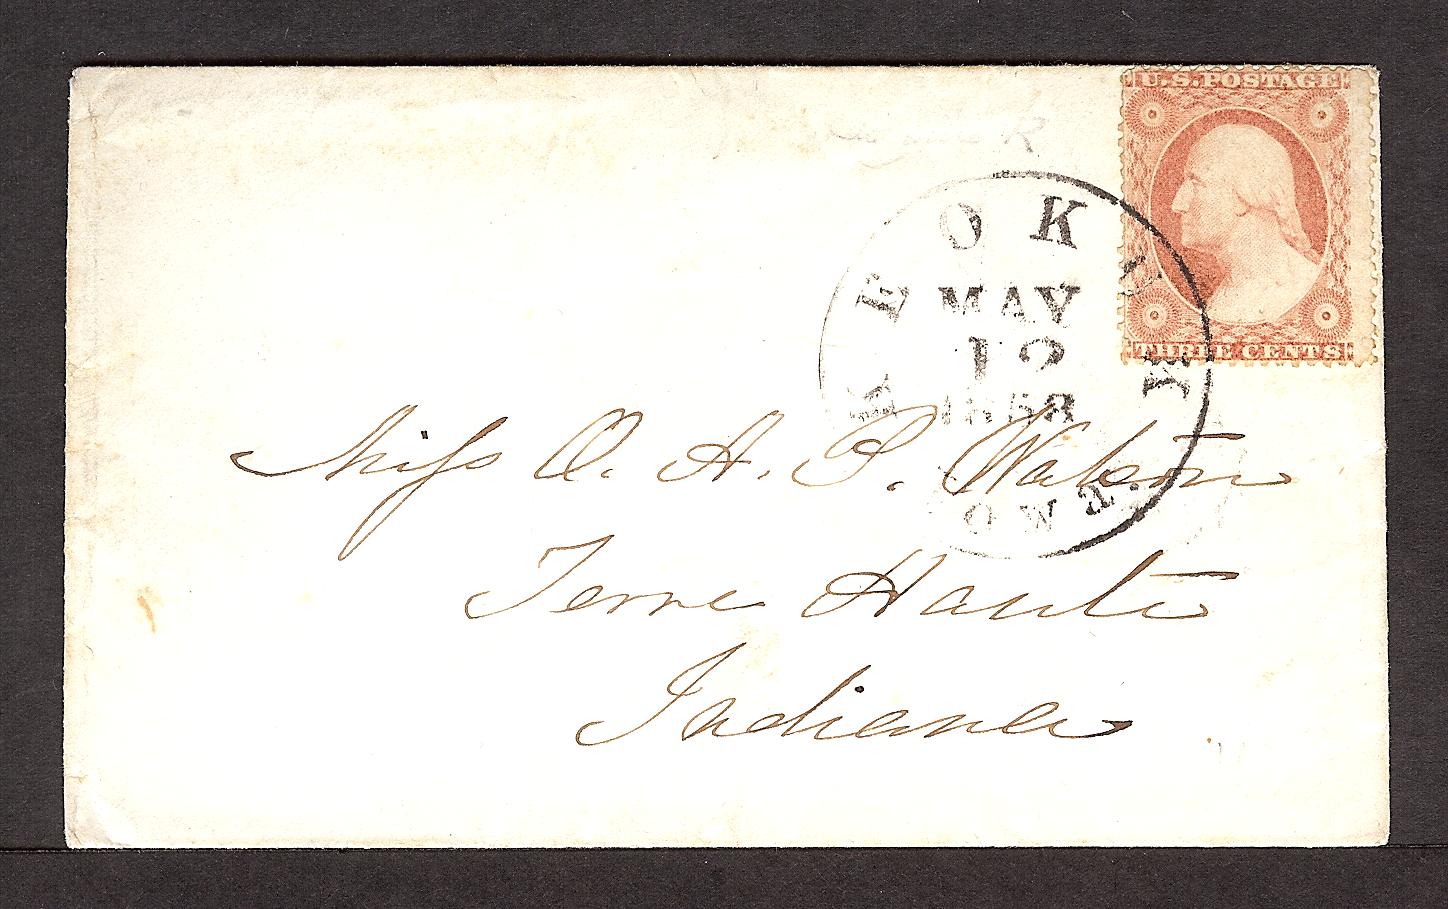 U.S. POSTAGE
THREE CENTS
KEOKUK
MAY
12
1858
Iowa.
Miss O. A. P. Watson
Terre Haute
Indiana